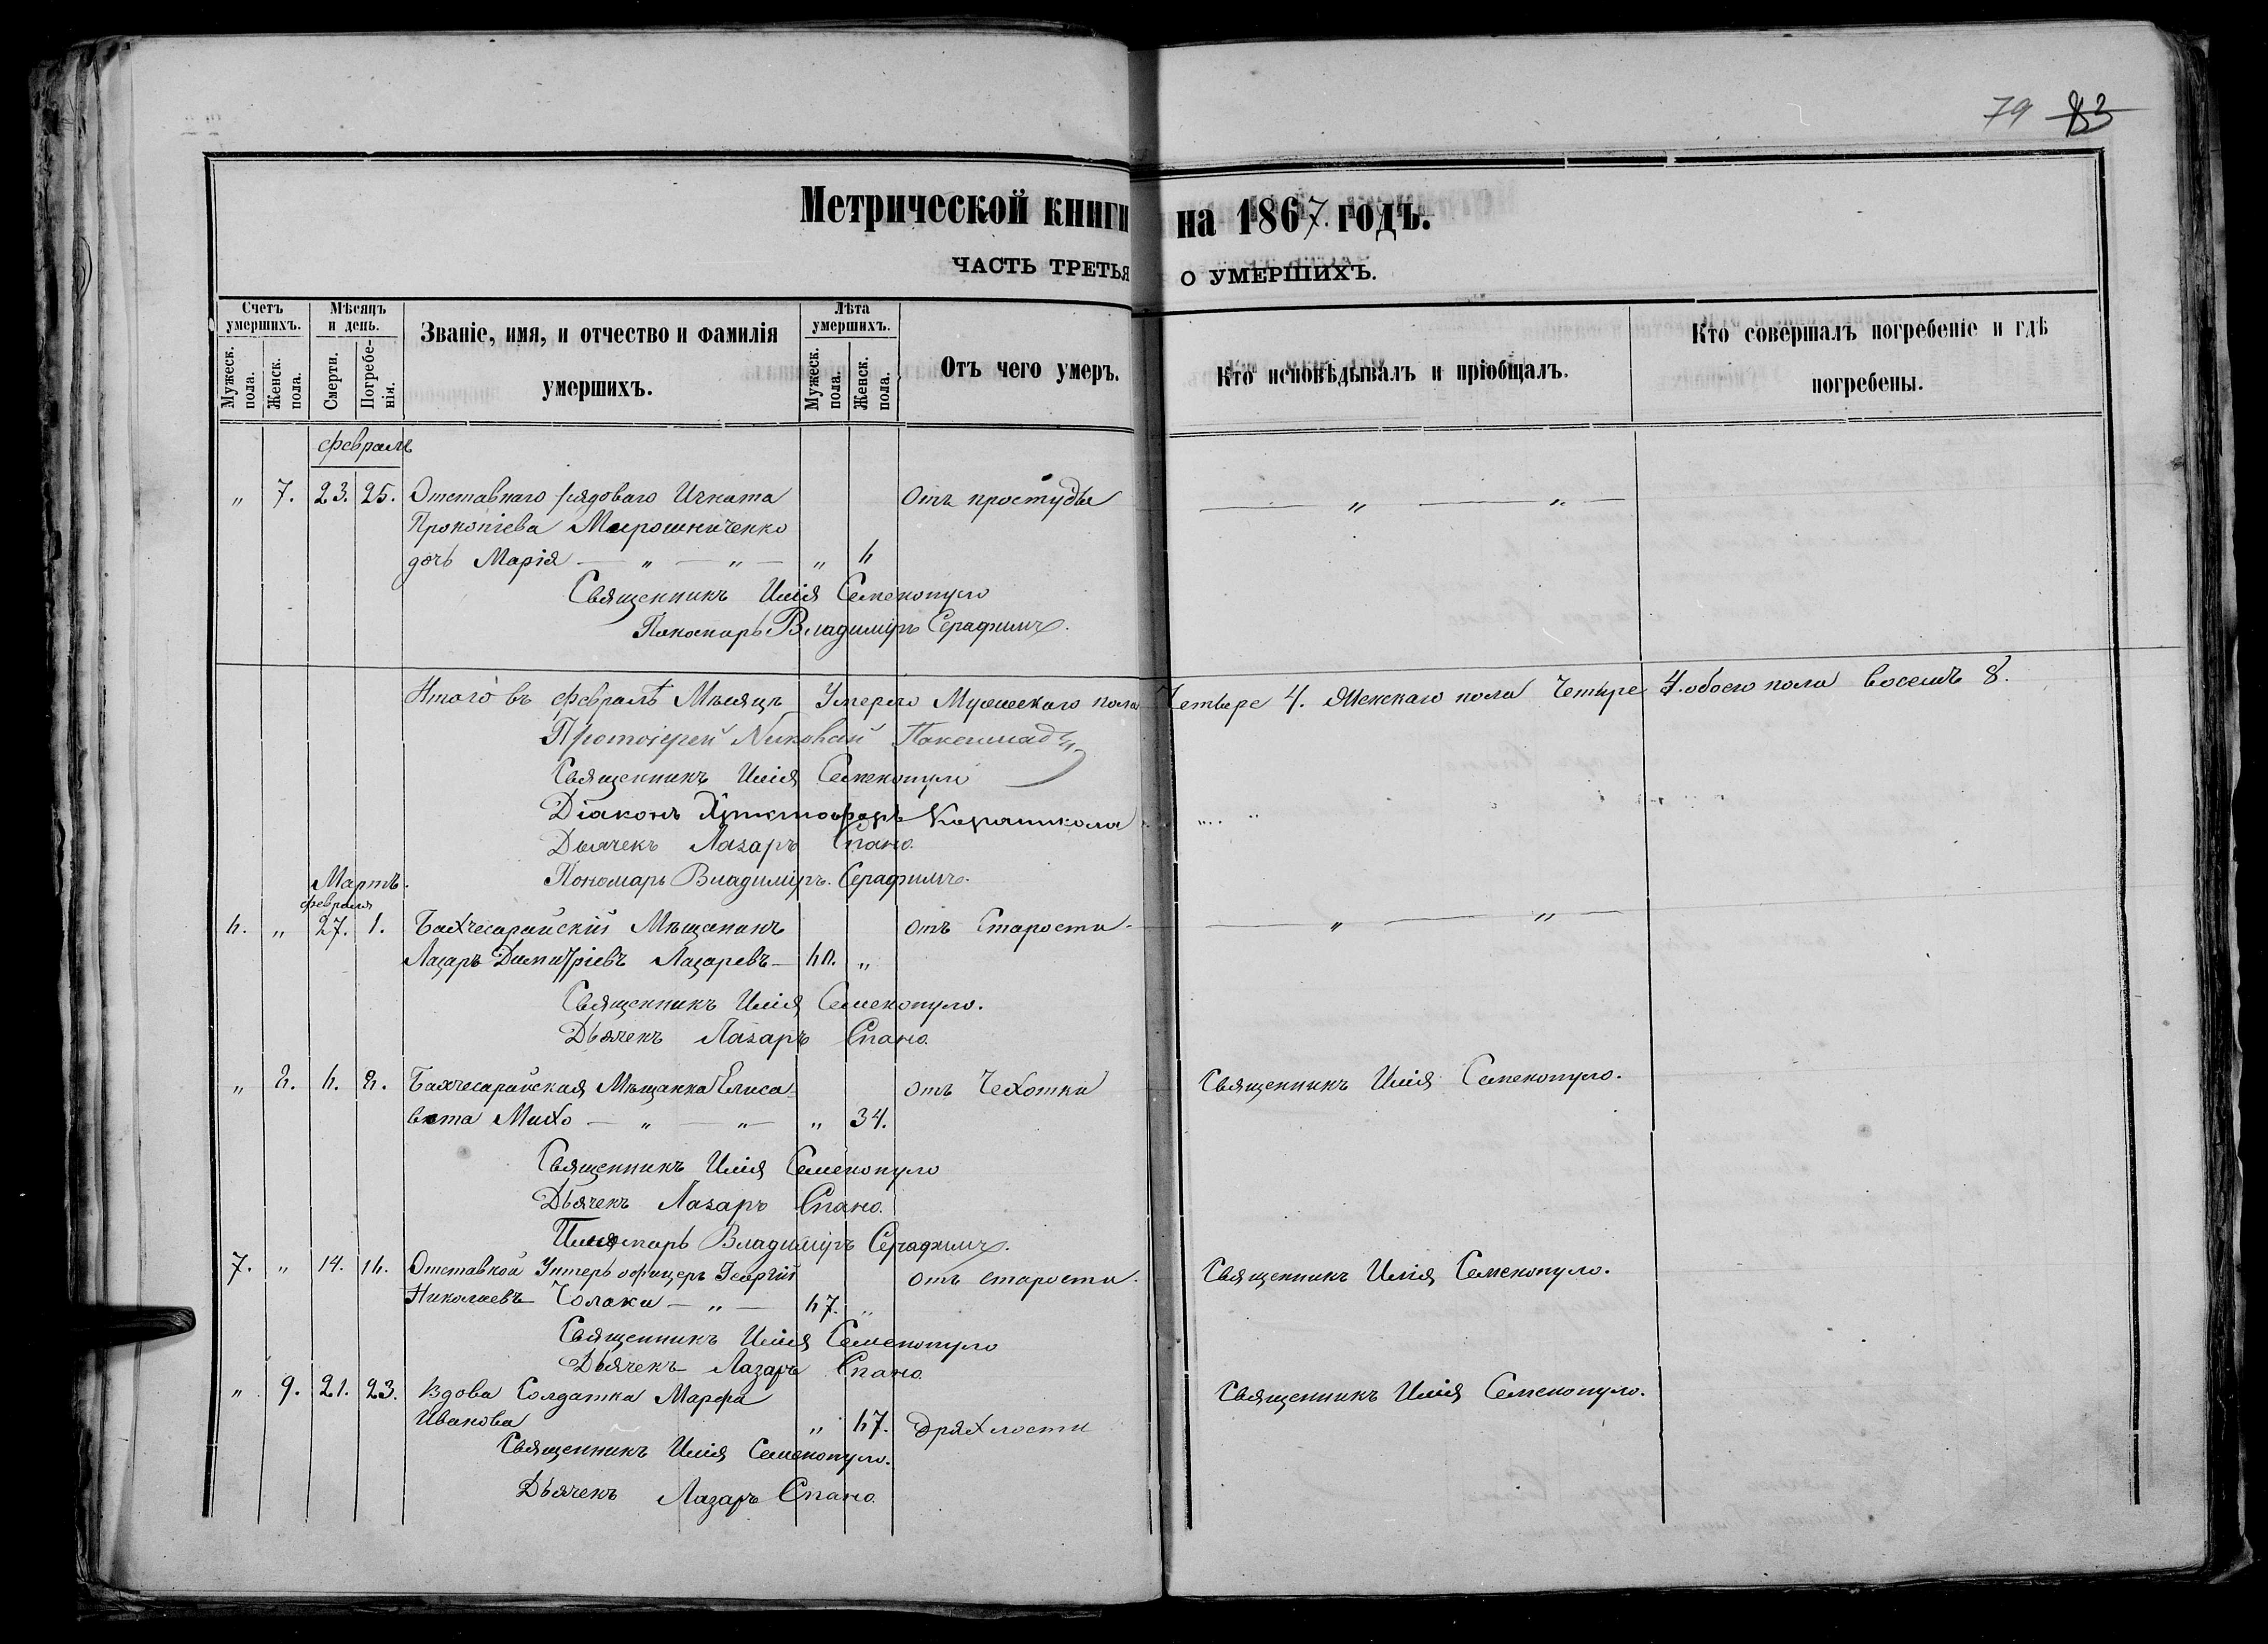 79 83
Метрической книги на 1867. годъ.
ЧАСТЬ ТРЕТЬЯ О УМЕРШИХЪ.
Счетъ умершихъ.
Мужеск. пола.
Женск. пола.
Мѣсяцъ и день.
Смерти.
Погребенія.
Званіе, имя, и отчество и фамилія
умершихъ.
Лѣта умершихъ.
Мужеск. пола.
Женск. пола.
Отъ чего умеръ.
Кто исповѣдывалъ и пріобщалъ.
Кто совершалъ погребеніе и гдѣ
погребены.
февраль
„ 7. 23. 25. Отставнаго рядоваго Игната Отъ простуды — „ — „ —
Прокопіева Мирошниченко
дочь Марія — „ — „ — „
Священникъ Илія Семенопуло
Пономарь Владиміръ Серафимъ.
Итого въ февралѣ Мѣсяцѣ Умерло Мужескаго пола Четыре 4. Женскаго пола Четыре 4. обоего пола восемь 8.
Протоіерей Николай
Священникъ Илія Семенопуло
Діаконъ Христофоръ Караникола
Дьячекъ Лазарь Спано.
Пономарь Владиміръ. Серафимъ.
Мартъ.
февраля
„ 27. 1. Бахчесарайскій Мѣщанинъ отъ Старости — „ — „ —
Лазарь Димитріевъ Лазаревъ — „
Священникъ Илія Семенопуло.
Дьячекъ Лазарь Спано.
„ Бахчесарайская Мѣщанка Елиса- отъ Чехотки Священникъ Илія Семенопуло.
вета Михо — „ — „ — „ 34.
Священникъ Илія Семенопуло
Дьячекъ Лазарь Спано.
Пономарь Владиміръ Серафимъ.
7. „ 14. Отставной Унтеръ офицеръ Георгій отъ старости. Священникъ Илія Семенопуло.
Николаевъ Чолаки — „ — „
Священникъ Илія Семенопуло
Дьячекъ Лазарь Спано.
„ 9. 21. 23. Вдова Солдатка Марфа Священникъ Илія Семенопуло.
Иванова „ дряхлости
Священникъ Илія Семенопуло.
Дьячекъ Лазарь Спано.